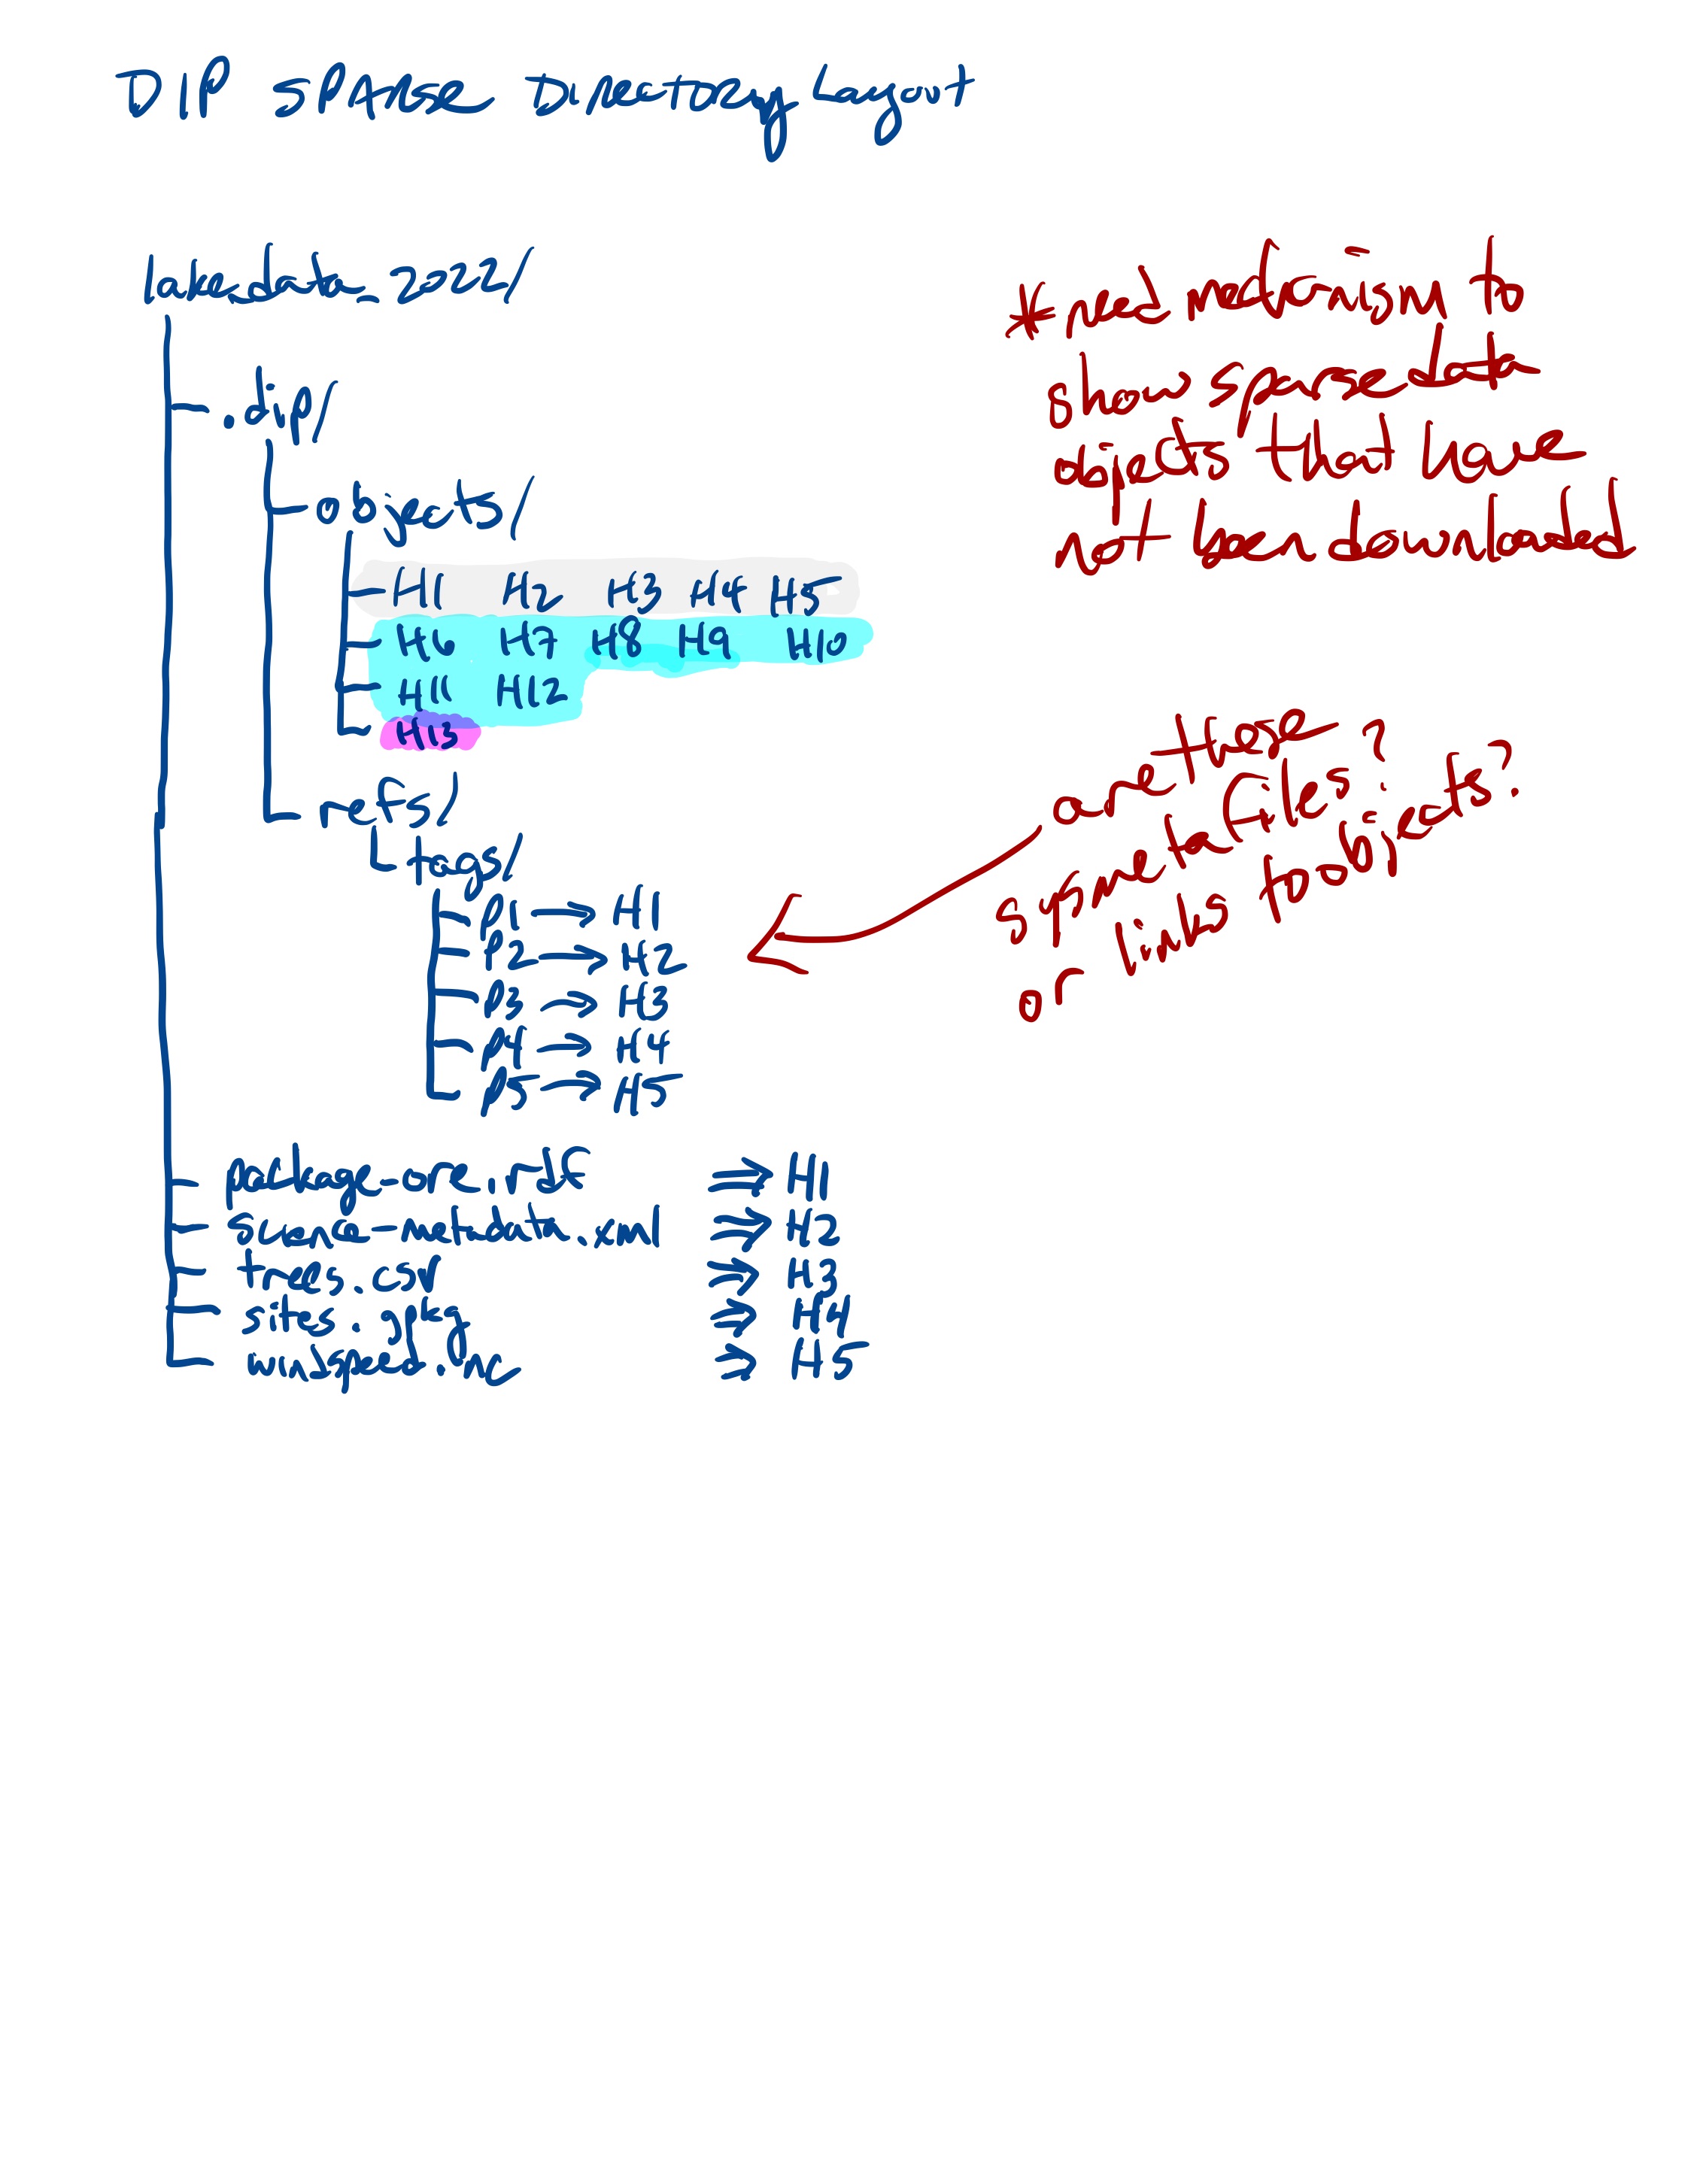 DIP SPARSE DIRECTORY Layout
lake_data_2022/
.dip/
objects/
H1 H2 H3 H4 H5
H6 H7 H8 H9 H10
H11 H12
H13
refs/
tags/
P1 → H1
P2 → H2
P3 → H3
P4 → H4
P5 → H5
package-ore.rdf ⇒ H1
science-metadata.xml ⇒ H2
trees.csv ⇒ H3
sites.gpkg ⇒ H4
windspeed.nc ⇒ H5
* need mechanism to
show sparse data
objects that have
not been downloaded
are these
sysmeta files?
or links to objects?